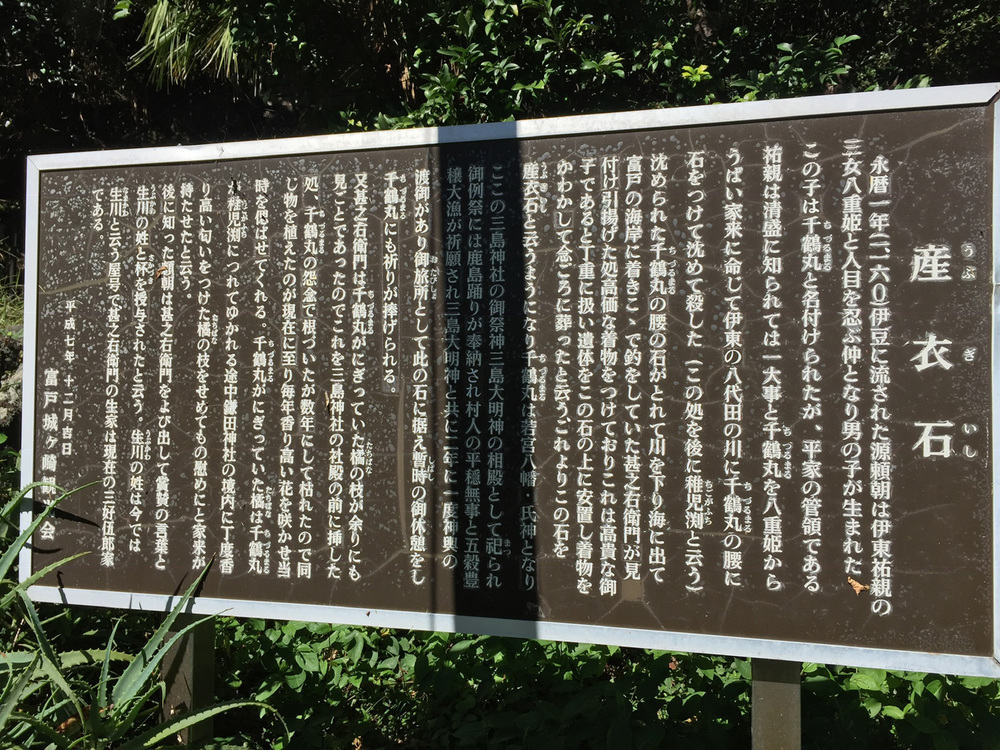 産衣石
永暦一年(一一六〇)伊豆に流された源頼朝は伊東祐親の
三女八重姫と人目を忍ぶ仲となり男の子が生まれた
この子は千鶴丸と名付けられたが、平家の管領である
祐親は清盛に知られては一大事と千鶴丸を八重姫から
うばい家来に命じて伊東の八代田の川に千鶴丸の腰に
石をつけて沈めて殺した(この処を後に稚児渕と云う)
沈められた千鶴丸の腰の石がとれて川を下り海に出て
富戸の海岸に着きこゝで釣をしていた甚之右衛門が見
付け引揚げた処高価な着物をつけておりこれは高貴な御
子であると丁重に扱い遺体をこの石の上に安置し着物を
かわかして念ごろに葬ったと云うこれよりこの石を
産衣石と云うようになり千鶴丸は若宮八幡・氏神となり
ここの三島神社の御祭神三島大明神の相殿として祀られ
御例祭には鹿島踊りが奉納され村人の平穏無事と五穀豊
穣大漁が祈願され三島大明神と共に二年に一度神輿の
渡御があり御旅所として此の石に据え暫時の御休憩をし
千鶴丸にも祈りが捧げられる。
又甚之右衛門は千鶴丸がにぎっていた橘の枝が余りにも
見ごとであったのでこれを三島神社の社殿の前に挿した
処、千鶴丸の怨念で根づいたが数年にして枯れたので同
じ物を植えたのが現在に至り毎年香り高い花を咲かせ当
時を偲ばせてくれる。千鶴丸がにぎっていた橘は千鶴丸
が稚児渕につれてゆかれる途中鎌田神社の境内に丁度香
り高い匂いをつけた橘の枝をせめてもの慰めにと家来が
持たせたと云う。
後に知った頼朝は甚之右衛門をよび出して賞賛の言葉と
生川の姓と杯を授与されたと云う。生川の姓は今では
生川と云う屋号で甚之右衛門の生家は現在の三好伍郎家
である。
平成七年 十二月吉日
富戸城ヶ崎 会